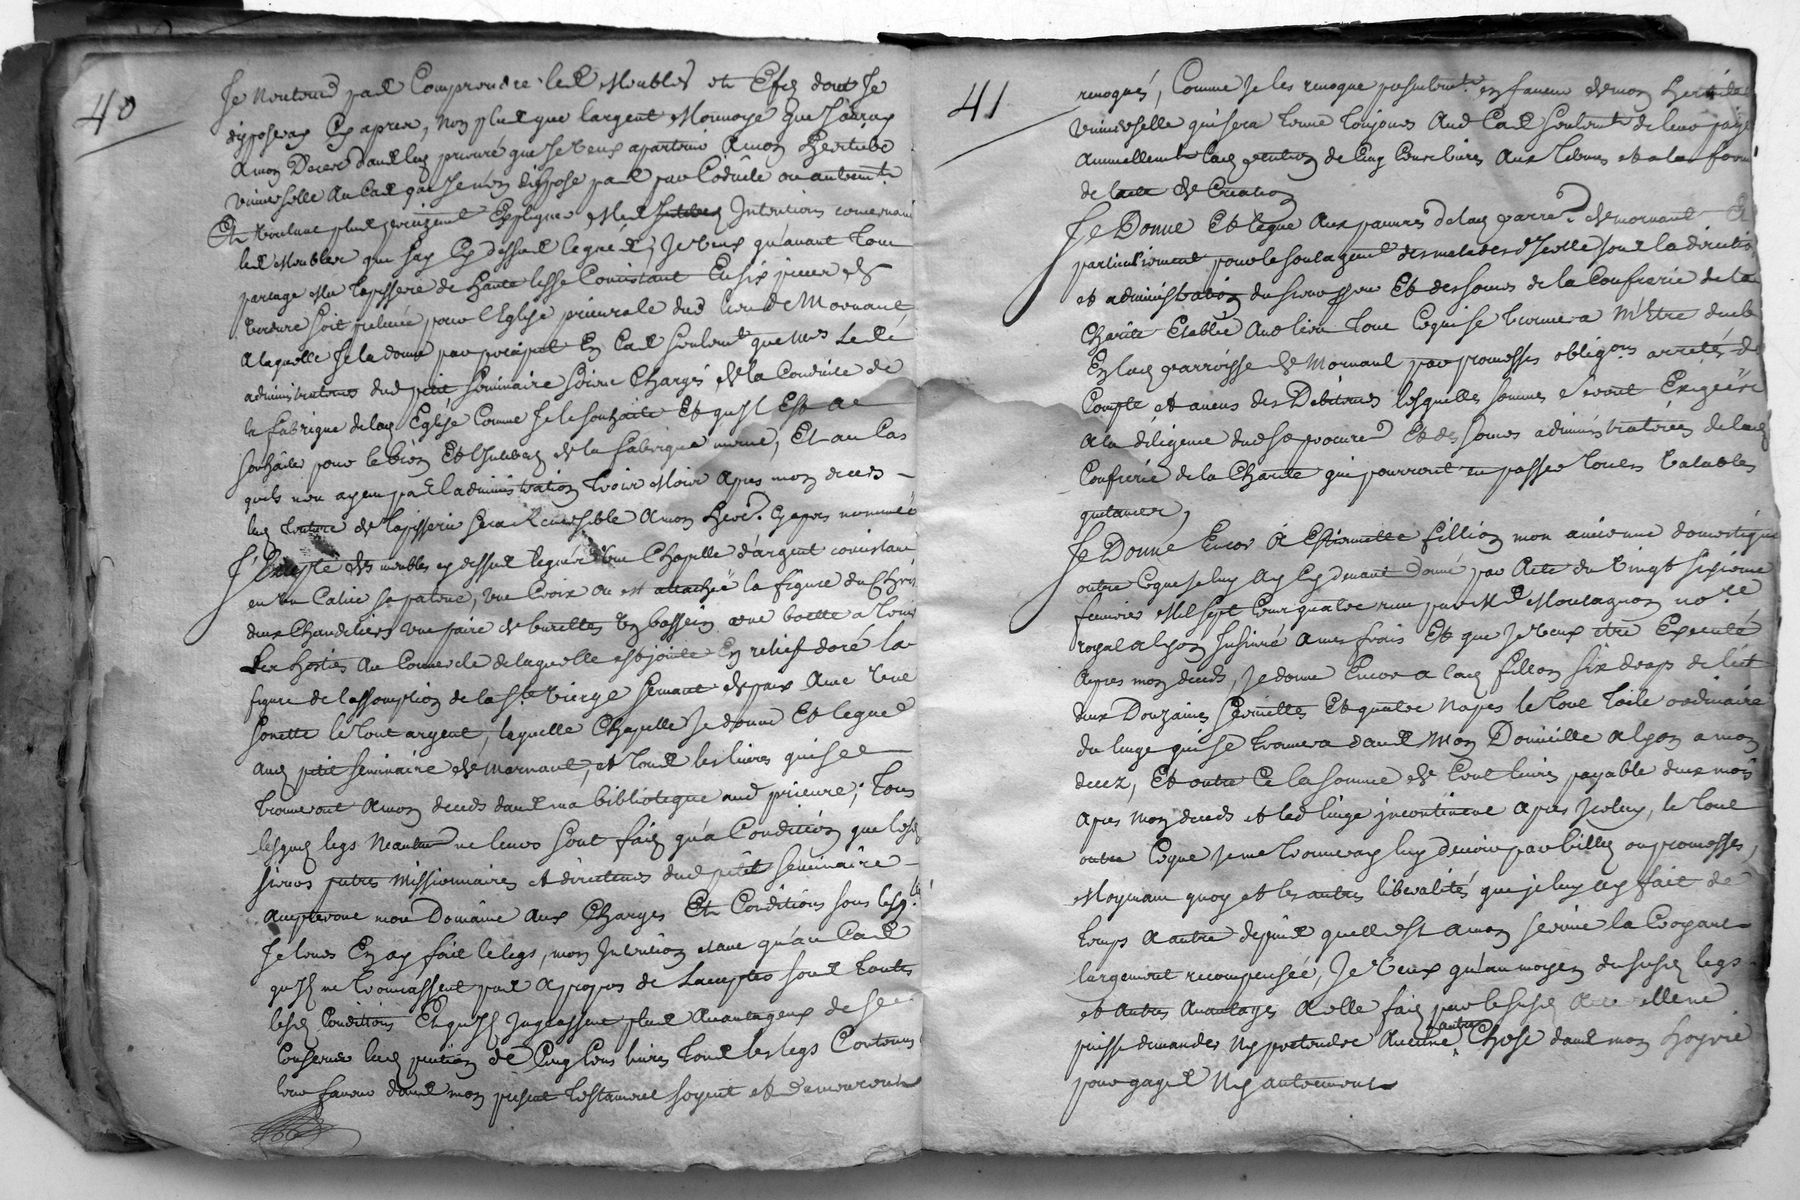 40
Je nentend pas Comprendre les Meubles et Efes dont Je
disposeray Cy apres, non plus que largent Monnoyé que J'auray
a mon Deces dans led prieuré que Je veux apartenir a mon heritiere
universelle au Cas que Je n'en dispose pas par Codicile ou autremt.
Et voulant plus Expliquer Mes Intentions concernant
les Meubles que Jay Cy dessus legués, Je veux qu'avant tout
partage Ma tapisserie de haute lisse Consistant En six pieces de
verdure soit pour l'Eglise prieurale dud lieu de Mornant
a laquelle Je la donne par preciput En Cas seulemt que Mrs Les
administrateurs dud petit seminaire soient Chargés de la Conduite de
la fabrique de lad Eglise Comme Je le souhaite Et qu'Il Est a
souhaiter pour le bien Et de la fabrique meme, Et au Cas
quils nen ayent pas l'administration trois Mois apres mon deces
lad tenture de tapisserie sera Reversible a mon herit. Cy apres nommée
J'Excepte des meubles cy dessus legués Une Chapelle d'argent consistant
en un Calice sa patene, une Croix ou est attachée la figure du Christ
deux Chandeliers une paire de burettes un bassein une boette a tenir
Les hosties au Couvercle de laquelle est jointe En relief doré la
figure de lassomption de la Ste Vierge servant de paix avec une
sonette le tout argent, laquelle Chapelle Je donne Et legue
aud petit seminaire de Mornant, et tous les livres qui se
trouveront a mon deces dans ma biblioteque aud prieuré; tous
lesquels legs Neantm ne leurs sont faits qu'a Condition que lesd
sieurs prtres Missionnaires et directeurs dud petit seminaire
accepteront mon Domaine aux Charges Et Conditions sous lesqlles
Je leurs En ay fait le legs, mon Intention etant qu'au Cas
qu'Ils ne trouvassent pas apropos de Laccepter sous toutes
lesd Conditions Et qu'Ils Jugeassent plus avantageux de se
Conserver lad pention de Cinq Cens livres tous les legs Contenus
leur faveur dans mon present testament soyent et demeurent
41
revoqués, Comme Je les revoque presentemt. en faveur de mon heritiere
universelle qui sera tenue toujours aud Cas seulemt de leur payer
annuellement lad pention de Cinq Cens livres aux termes et a la forme
de lacte de Creation
Je Donne Et legue aux pauvres de lad parre. de mornant Et
particulierement pour le soulagement des malades d'Icelle sous la direction
et administration du sieur Et des soeurs de la Confrerie de la
Charité Etablie aud lieu tout Cequi se trouvera M'Etre deub
En lad parroisse de Mornant par promesses obligons arretés de
Compte et aveus des Debiteurs lesquelles sommes seront Exigées
a la diligence dud Sr procureur Et des soeurs administratrices de lad
Confrerie de la Charité qui pourront en passer toutes valables
quitances,
Je Donne Encor a Estiennette fillion mon ancienne domestique
outre Ceque Je luy ay Cy devant donné par Acte du Vingt sixieme
fevrier Mil sept Cens quatre recu par Me Montagnon nore
royal a lyon Insinué a mes frais Et que Je veux etre Executé
apres mon deces, Je donne Encor a lad fillion six draps de lict
deux Douzaines serviettes Et quatre Napes le tout toile ordinaire
du linge qui se trouvera dans Mon Domicille a lyon a mon
decez, Et outre Ce la somme de Cent livres payable deux mois
apres mon deces et led linge jncontinent apres Jceluy, le tout
outre Ceque Je me trouveray luy devoir par billets ou promesses,
Moyenant quoy et les autres liberalités que je luy ay fait de
temps a autre depuis quelle est a mon service la Croyant
largement recompensée, Je veux qu'au moyen du susd legs
et autres avantages a elle faits par le susd Acte elle ne
puisse demander Ny pretendre Aucune autre Chose dans mon hoyrie
pour gages Ny autrement